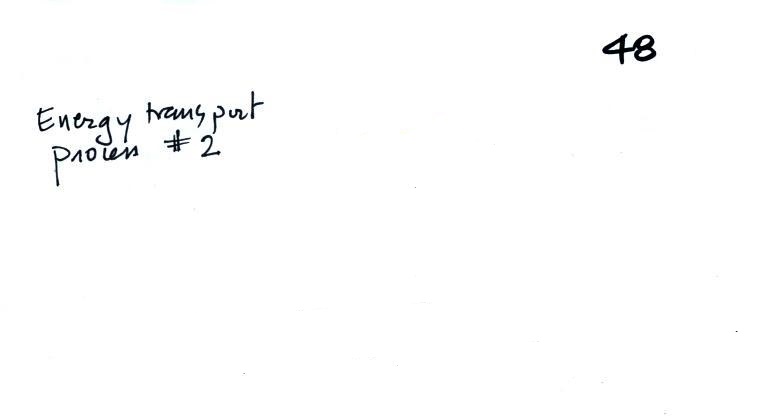 48
Energy transport
process #2